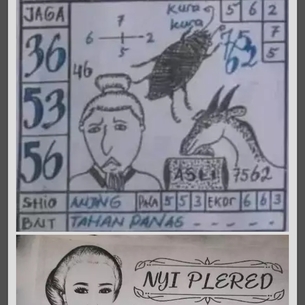 JAGA
36
53
56
46
7
6 2
5
kura
kura
5 6 2
7
5
75
62
ASLI
7562
SHIO ANJING PWA 5 5 3 EKOR 6 6 3
BNT TAHAN PANAS
NYI PLERED